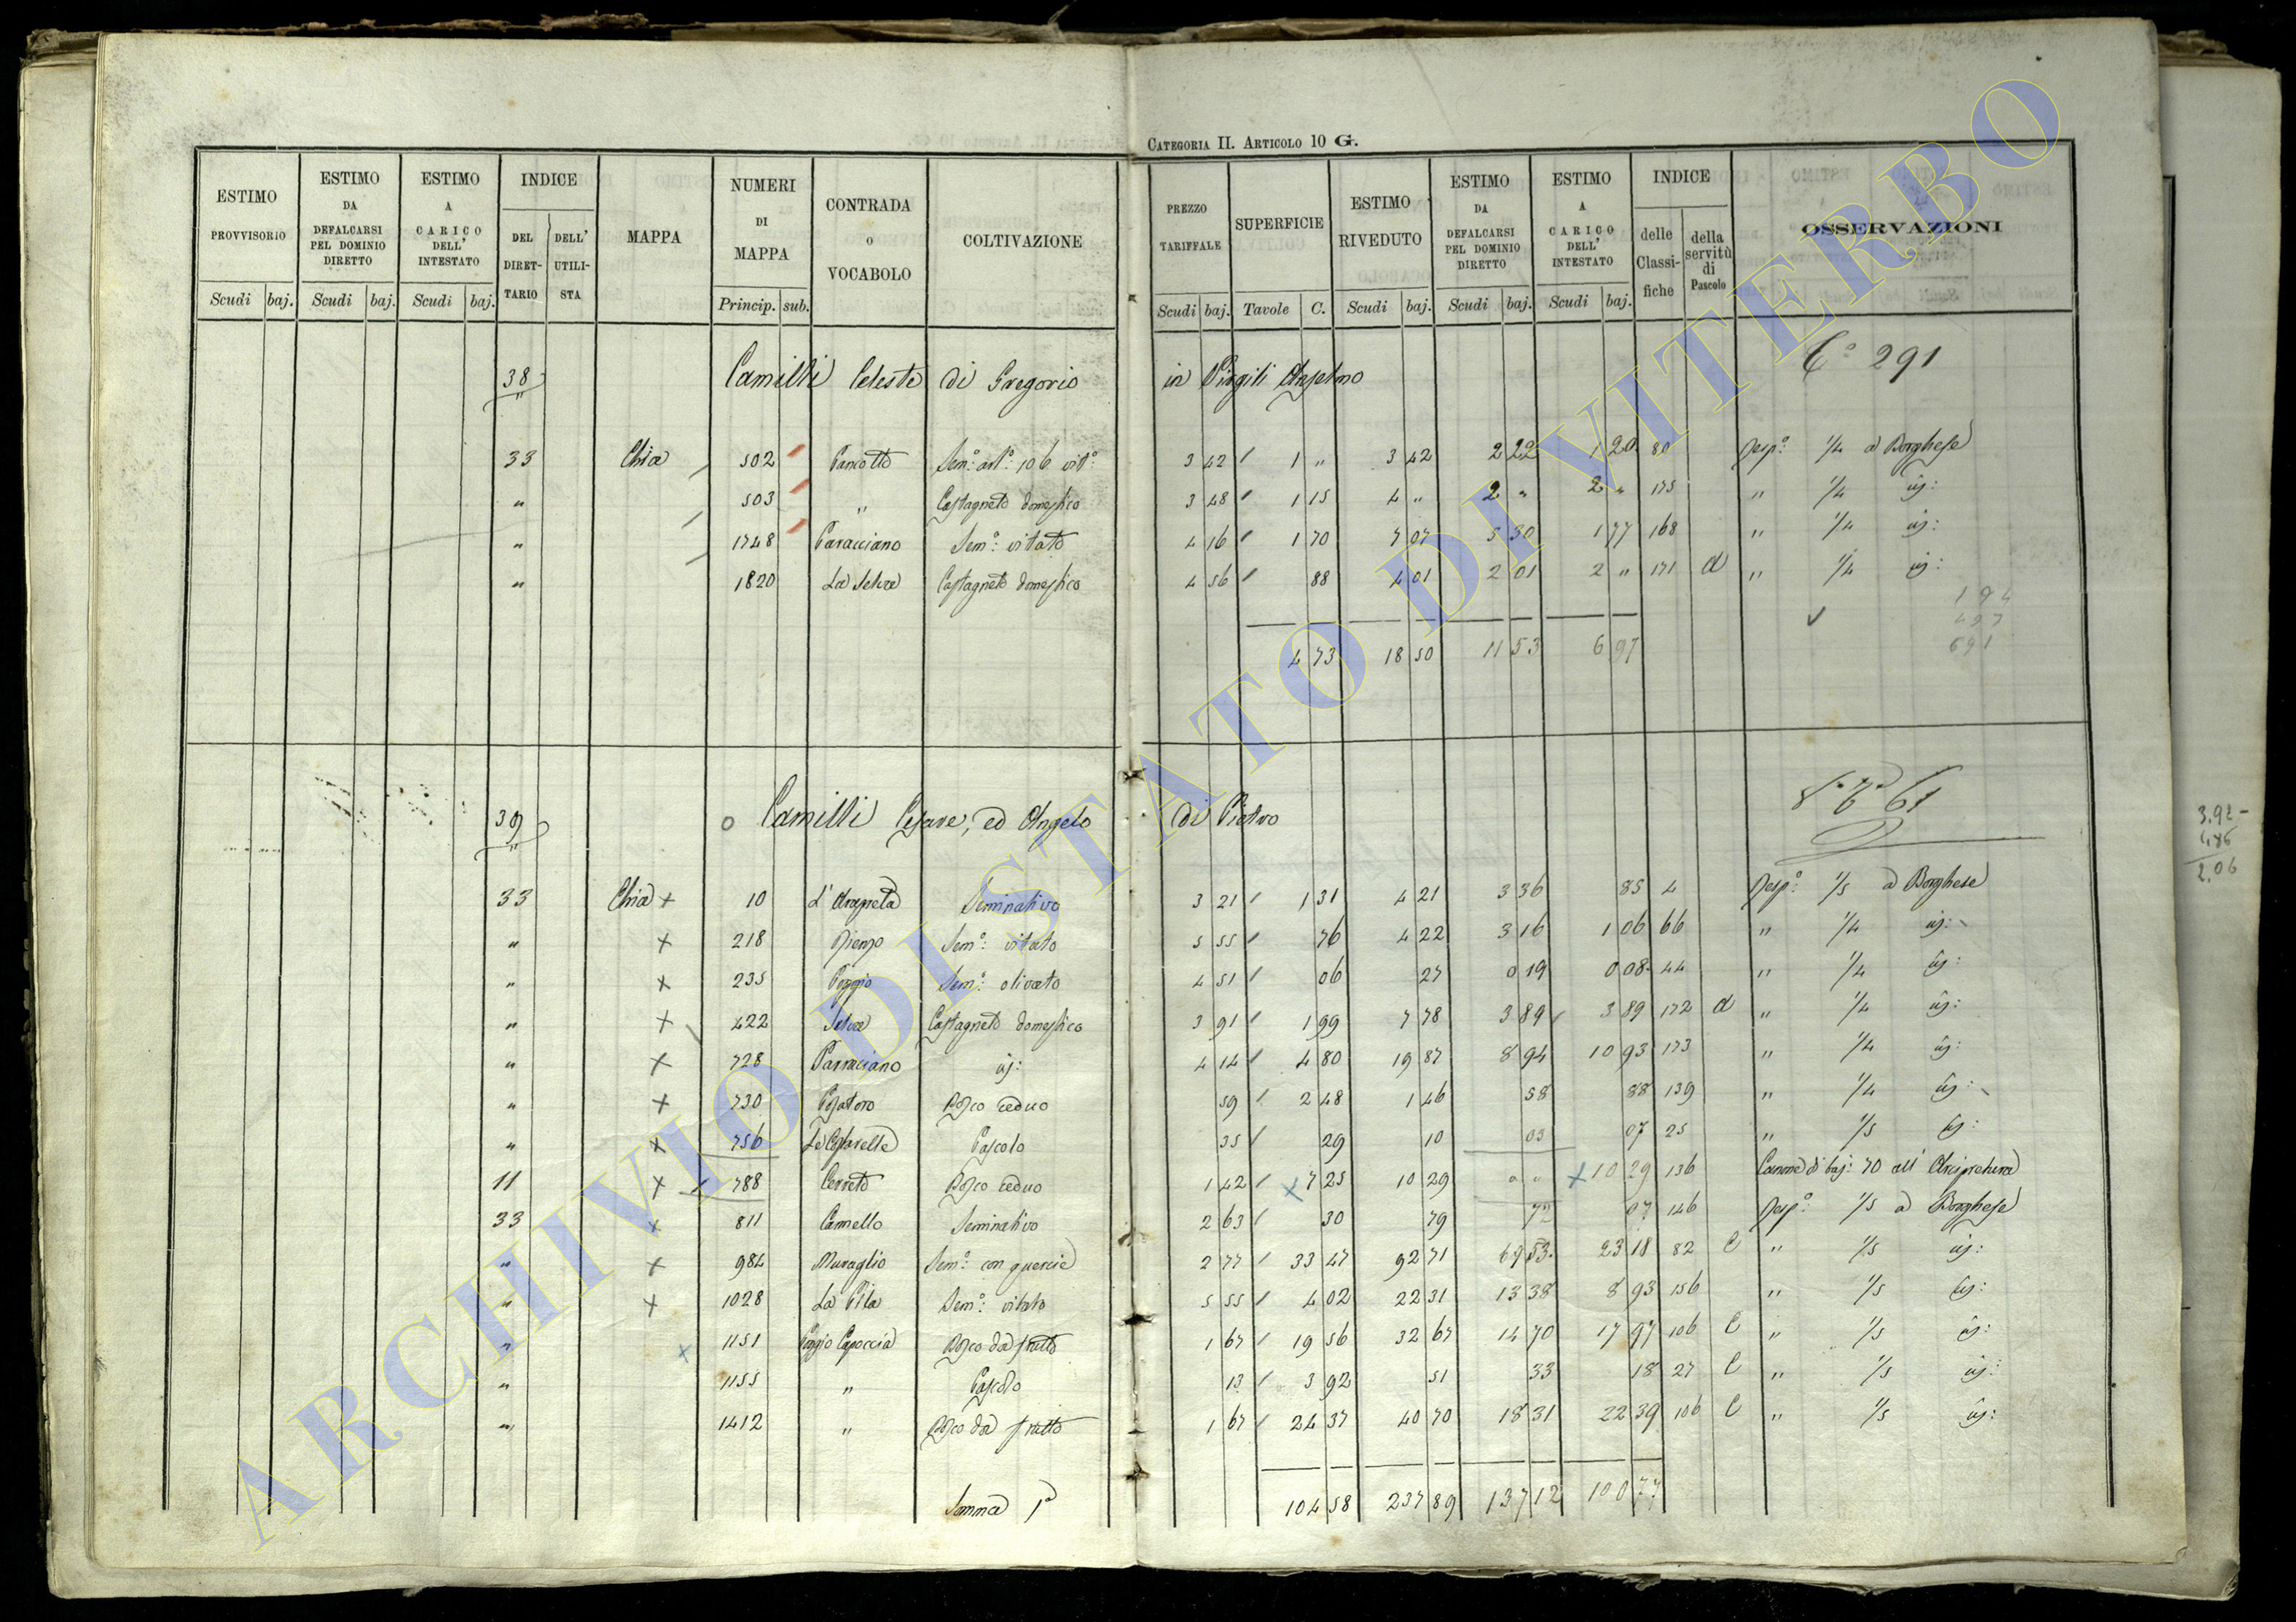 CATEGORIA II. ARTICOLO 10 G.
ESTIMO PROVVISORIO Scudi baj. | ESTIMO DA DEFALCARSI PEL DOMINIO DIRETTO Scudi baj. | ESTIMO A CARICO DELL' INTESTATO Scudi baj. | INDICE DEL DIRET-TARIO DELL' UTILI-STA | MAPPA | NUMERI DI MAPPA Princip. sub. | CONTRADA o VOCABOLO | COLTIVAZIONE | PREZZO TARIFFALE Scudi baj. | SUPERFICIE Tavole C. | ESTIMO RIVEDUTO Scudi baj. | ESTIMO DA DEFALCARSI PEL DOMINIO DIRETTO Scudi baj. | ESTIMO A CARICO DELL' INTESTATO Scudi baj. | INDICE delle Classi-fiche della servitù di Pascolo | OSSERVAZIONI
38 Camilli Celeste di Gregorio in Virgili Anselmo 291
33 Chia 502 Pancotto Sem.º 3 42 1 " 3 42 2 22 1 20 80 Resp.º 1/4 a Borghese
" 503 " Castagneto domestico 3 48 1 15 4 " 2 " 2 " 175 " 1/4 id:
" 1748 Paracciano Sem.º vitato 4 16 1 70 7 07 5 30 1 77 168 " 1/4 id:
" 1820 La Selva Castagneto domestico 4 56 88 4 01 2 01 2 " 171 d " 1/4 id:
194
497
691
4 73 18 50 11 53 6 97
39 Camilli Cesare, ed Angelo di Pietro
3.92
1,86
2.06
33 Chia × 10 Seminativo 3 21 1 31 4 21 3 36 85 4 Resp.º 1/5 a Borghese
" × 218 Sem.º vitato 5 55 76 4 22 3 16 1 06 66 " 1/4 id:
" × 235 Poggio Sem.º olivato 4 51 06 27 0 19 0 08 44 " 1/4 id:
" × 422 Selva Castagneto domestico 3 91 1 99 7 78 3 89 3 89 172 d " 1/4 id:
" × 728 Parracciano id: 4 14 4 80 19 87 8 94 10 93 173 " 1/4 id:
" × 730 Bosco ceduo 59 2 48 1 46 58 88 139 " 1/4 id:
" × 756 Pascolo 35 29 10 03 07 25 " 1/5 id:
11 × 788 Cerreto Bosco ceduo 1 42 × 7 25 10 29 " " × 10 29 136 Canone di baj: 70 all' Arcipretura
33 × 811 Camello Seminativo 2 63 30 79 72 07 146 Resp.º 1/5 a Borghese
" × 984 Muraglio Sem.º con quercie 2 77 33 47 92 71 69 53 23 18 82 C " 1/5 id:
" × 1028 La Pila Sem.º vitato 5 55 4 02 22 31 13 38 8 93 156 " 1/5 id:
" × 1151 Poggio Capoccia Bosco da frutto 1 67 19 56 32 67 14 70 17 97 106 C " 1/5 id:
" 1155 " Pascolo 13 3 92 51 33 18 27 C " 1/5 id:
" 1412 " Bosco da frutto 1 67 24 37 40 70 18 31 22 39 106 C " 1/5 id:
Somma 104 58 237 89 137 12 100 77
ARCHIVIO DI STATO DI VITERBO